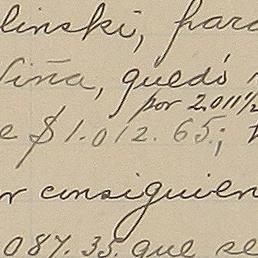 linski, para
Niña, quedó
por 2.011½
e $1.012.65;
r consiguien
087.35. que se